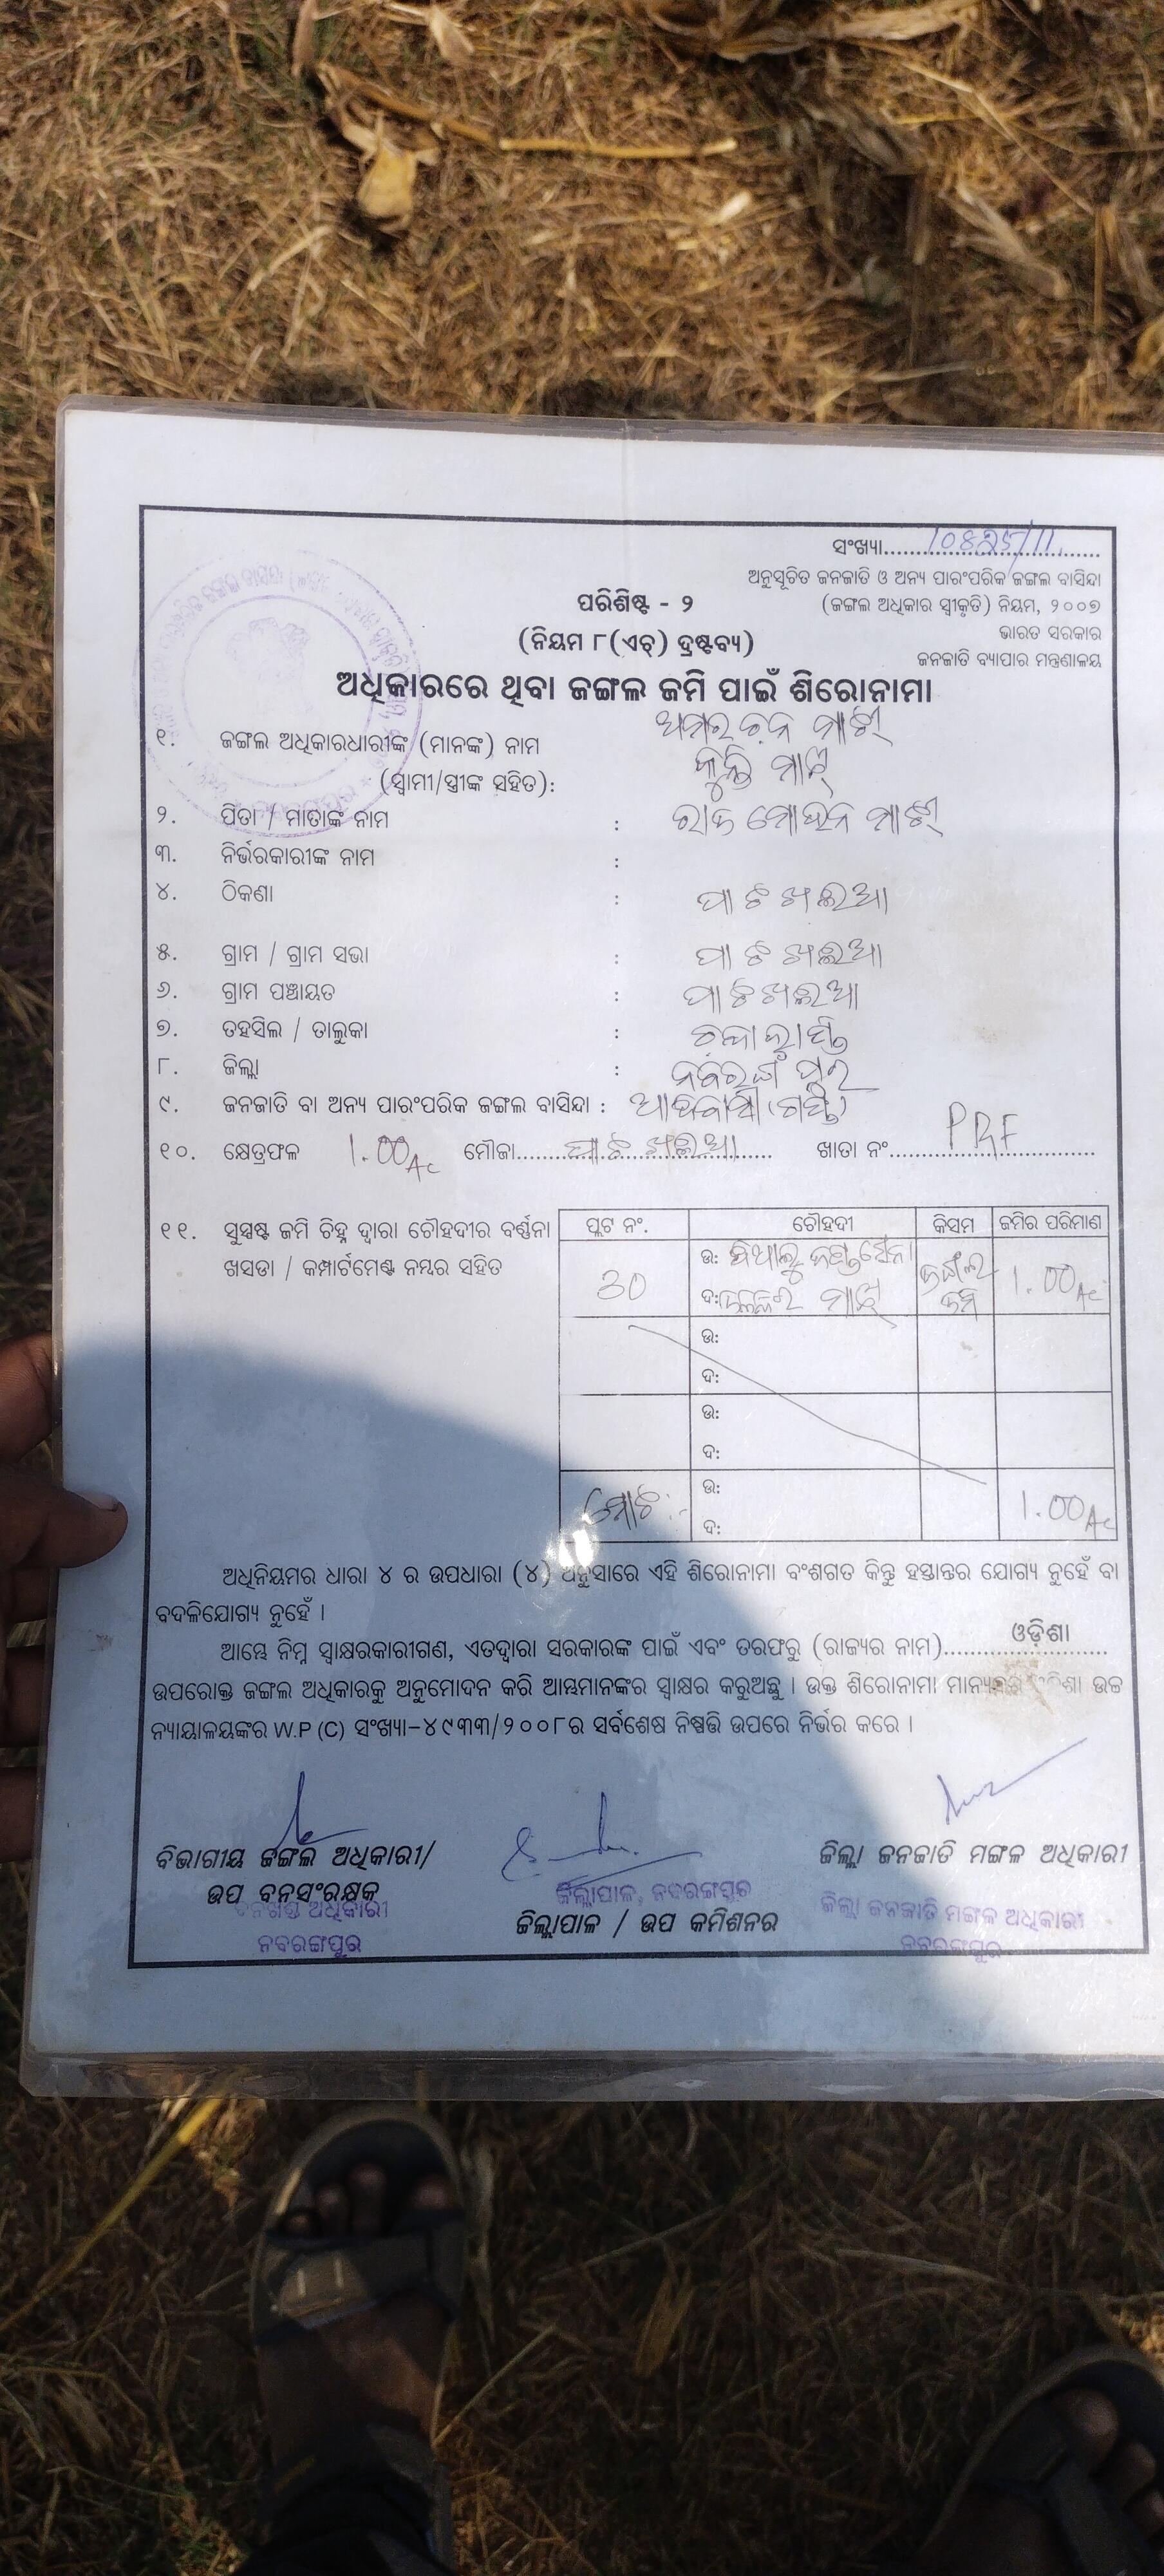 ସଂଖ୍ୟା..............................
ଅନୁସୂଚିତ ଜନଜାତି ଓ ଅନ୍ୟ ପାରଂପରିକ ଜଙ୍ଗଲ ବାସିନ୍ଦା
(ଜଙ୍ଗଲ ଅଧିକାର ସ୍ୱୀକୃତି) ନିୟମ, ୨୦୦୭
ଭାରତ ସରକାର
ଜନଜାତି ବ୍ୟାପାର ମନ୍ତ୍ରଣାଳୟ
ପରିଶିଷ୍ଟ - ୨
(ନିୟମ ୮(ଏଚ୍) ଦ୍ରଷ୍ଟବ୍ୟ)
ଅଧିକାରରେ ଥିବା ଜଙ୍ଗଲ ଜମି ପାଇଁ ଶିରୋନାମା
୧. ଜଙ୍ଗଲ ଅଧିକାରଧାରୀଙ୍କ (ମାନଙ୍କ) ନାମ
(ସ୍ୱାମୀ/ସ୍ତ୍ରୀଙ୍କ ସହିତ):
୨. ପିତା / ମାତାଙ୍କ ନାମ :
୩. ନିର୍ଭରକାରୀଙ୍କ ନାମ :
୪. ଠିକଣା : ପାଟଖଲିଆ
୫. ଗ୍ରାମ / ଗ୍ରାମ ସଭା : ପାଟଖଲିଆ
୬. ଗ୍ରାମ ପଞ୍ଚାୟତ : ପାଟଖଲିଆ
୭. ତହସିଲ / ତାଲୁକା :
୮. ଜିଲ୍ଲା : ନବରଙ୍ଗପୁର
୯. ଜନଜାତି ବା ଅନ୍ୟ ପାରଂପରିକ ଜଙ୍ଗଲ ବାସିନ୍ଦା : ଆଦିବାସୀ (ଗଣ୍ଡ)
୧୦. କ୍ଷେତ୍ରଫଳ 1.00Ac ମୌଜା ପାଟଖଲିଆ ଖାତା ନଂ PRF
୧୧. ସୁସ୍ପଷ୍ଟ ଜମି ଚିହ୍ନ ଦ୍ୱାରା ଚୌହଦୀର ବର୍ଣ୍ଣନା
ଖସଡା / କମ୍ପାର୍ଟମେଣ୍ଟ ନମ୍ବର ସହିତ
ପ୍ଲଟ ନଂ. ଚୌହଦୀ କିସମ ଜମିର ପରିମାଣ
30 ଉ: ଜଙ୍ଗଲ 1.00Ac
ଦ: ମାଝି ଜମି
ଉ:
ଦ:
ଉ:
ଦ:
ମୋଟ:- ଉ: 1.00Ac
ଦ:
ଅଧିନିୟମର ଧାରା ୪ ର ଉପଧାରା (୪) ଅନୁସାରେ ଏହି ଶିରୋନାମା ବଂଶଗତ କିନ୍ତୁ ହସ୍ତାନ୍ତର ଯୋଗ୍ୟ ନୁହେଁ ବା
ବଦଳିଯୋଗ୍ୟ ନୁହେଁ ।
ଆମ୍ଭେ ନିମ୍ନ ସ୍ୱାକ୍ଷରକାରୀଗଣ, ଏତଦ୍ୱାରା ସରକାରଙ୍କ ପାଇଁ ଏବଂ ତରଫରୁ (ରାଜ୍ୟର ନାମ) ଓଡ଼ିଶା
ଉପରୋକ୍ତ ଜଙ୍ଗଲ ଅଧିକାରକୁ ଅନୁମୋଦନ କରି ଆମ୍ଭମାନଙ୍କର ସ୍ୱାକ୍ଷର କରୁଅଛୁ । ଉକ୍ତ ଶିରୋନାମା ଉଚ୍ଚ
ନ୍ୟାୟାଳୟଙ୍କର W.P (C) ସଂଖ୍ୟା-୪୯୩୩/୨୦୦୮ର ସର୍ବଶେଷ ନିଷ୍ପତ୍ତି ଉପରେ ନିର୍ଭର କରେ ।
ବିଭାଗୀୟ ଜଙ୍ଗଲ ଅଧିକାରୀ/
ଉପ ବନସଂରକ୍ଷକ
ବନଖଣ୍ଡ ଅଧିକାରୀ
ନବରଙ୍ଗପୁର
ଜିଲ୍ଲାପାଳ, ନବରଙ୍ଗପୁର
ଜିଲ୍ଲାପାଳ / ଉପ କମିଶନର
ଜିଲ୍ଲା ଜନଜାତି ମଙ୍ଗଳ ଅଧିକାରୀ
ଜିଲ୍ଲା ଜନଜାତି ମଙ୍ଗଳ ଅଧିକାରୀ
ନବରଙ୍ଗପୁର